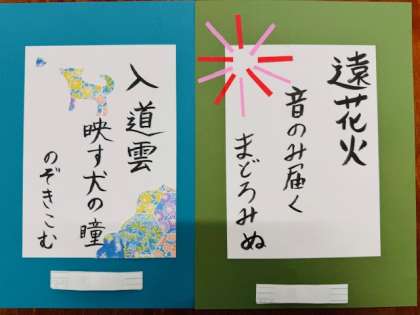 遠花火
音のみ届く
まどろみぬ
入道雲
映す犬の瞳
のぞきこむ